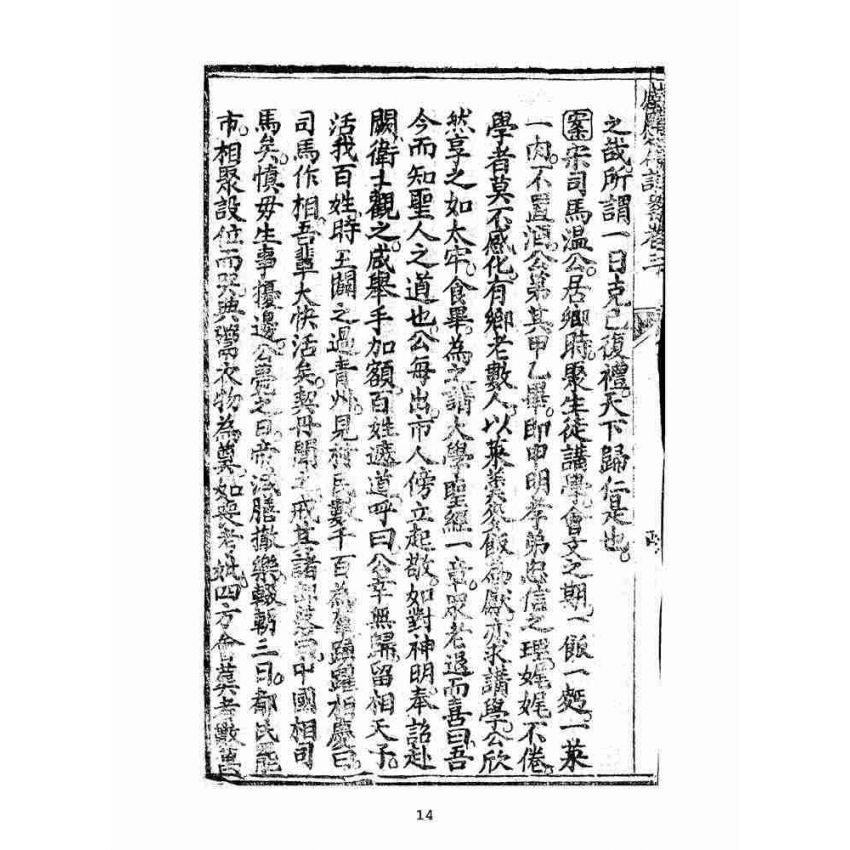 之哉所謂一日克己復禮天下歸仁是也
案宋司馬温公居鄉時聚生徒講學會文之期一飯一麪一菜
一肉不置酒公第其甲乙畢即申明孝弟忠信之理娓娓不倦
學者莫不感化有鄉老數人以菜羮麥飯為獻亦求講學公欣
然享之如太牢食畢為之講大學聖經一章眾老退而喜曰吾
今而知聖人之道也公每出市人傍立起敬如對神明奉詔赴
闕衛士觀之咸舉手加額百姓遮道呼曰公幸無歸留相天子
活我百姓時王闢之過青州見村民數千百為羣踴躍相慶曰
司馬作相吾輩大快活矣契丹聞之戒其諸部落曰中國相司
馬矣慎毋生事擾邊公薨之日帝減膳撤樂輟朝三日都民罷
市相聚設位而哭典鬻衣物為奠如喪考妣四方會葬者數萬
卷三
14